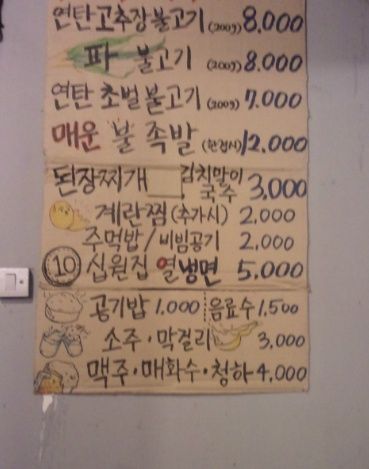 연탄고추장불고기 (200g) 8,000
파 불고기 (200g) 8,000
연탄 초벌불고기 (200g) 7,000
매운 불 족발 (한접시) 12,000
된장찌개 김치말이 국수 3,000
계란찜 (추가시) 2,000
주먹밥/비빔공기 2,000
10 십원집 열냉면 5,000
공기밥 1,000 음료수 1,500
소주·막걸리 3,000
맥주·매화수·청하 4,000